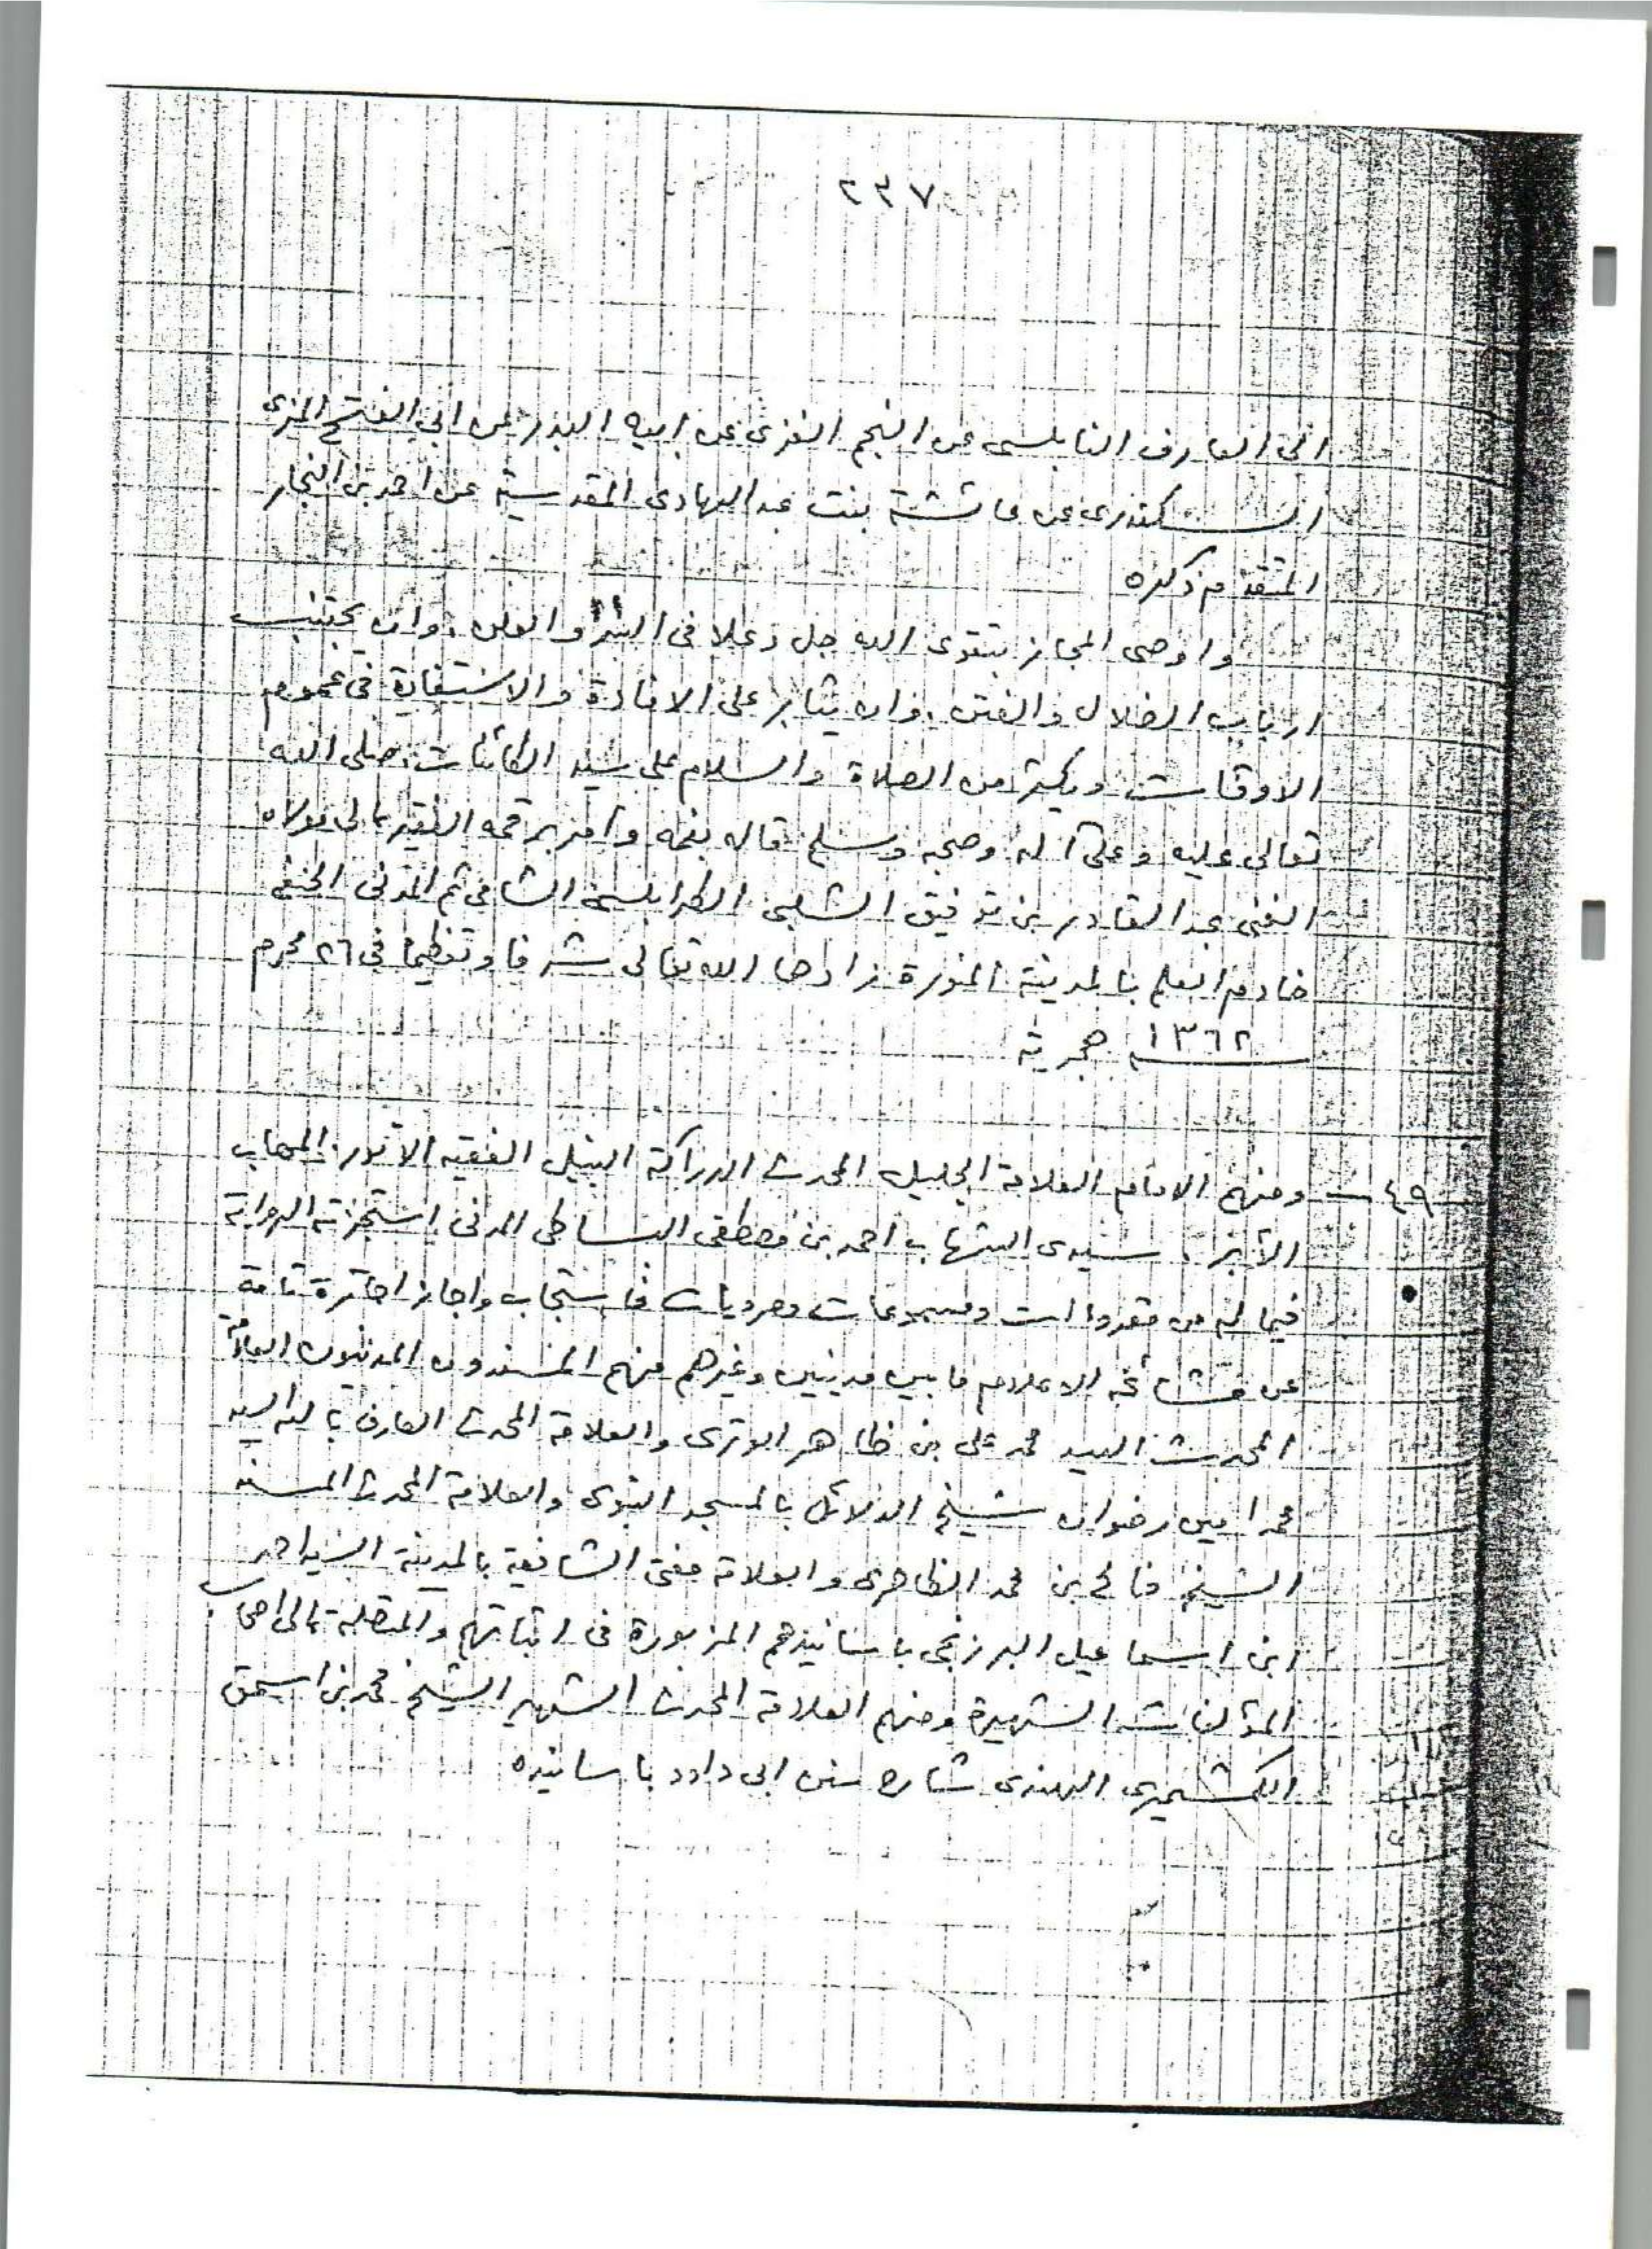 ٢٣٧
الى العارف النابلسى عن النجم الغزى عن ابيه البدر عن ابي الفتح المزى
السكندرى عن عائشة بنت عبد الهادى المقدسية عن احمد بن النجار
المتقدم ذكره
واوصى المجاز بتقوى الله جل وعلا فى السر والعلن . وان يجتنب
ارباب الضلال والفتن . وان يثابر على الافادة والاستفادة فى عموم
الاوقات ويكثر من الصلاة والسلام على سيد الكائنات صلى الله
تعالى عليه وعلى آله وصحبه وسلم قاله بفمه وامر برقمه الفقير الى مولاه
الغنى عبد القادر بن توفيق الشلبى الطرابلسى الشامى ثم المدنى الحنفى
خادم العلم بالمدينة المنورة زادها الله تعالى شرفا وتعظيما فى ٢٦ محرم
١٣٦٢ هجرية
٤٩ - ومنهم الامام العلامة الجليل المحدث الدراكة النبيل الفقيه الأنور . المهاب
الأبر . سيدى الشهاب احمد بن مصطفى البساطى المدنى استجزته الرواية
فيما له من مقروءات ومسموعات ومرويات فاستجاب واجاز اجازة تامة
عن مشائخه الاعلام ما بين مدنيين وغيرهم منهم المسندون المدنيون العلامة
المحدث السيد محمد على بن ظاهر الوترى والعلامة المحدث العارف بالله السيد
محمد امين رضوان شيخ الدلائل بالمسجد النبوى والعلامة المحدث المسند
الشيخ فالح بن محمد الظاهرى والعلامة مفتى الشافعية بالمدينة السيد احمد
ابن اسماعيل البرزنجى باسانيدهم المزبورة فى اثباتهم والمتصلة الى اصحاب
المؤلفات الشهيرة ومنهم العلامة المحدث الشهير الشيخ محمد بن اسحق
الكشميرى الهندى شارح سنن ابى داود باسانيده